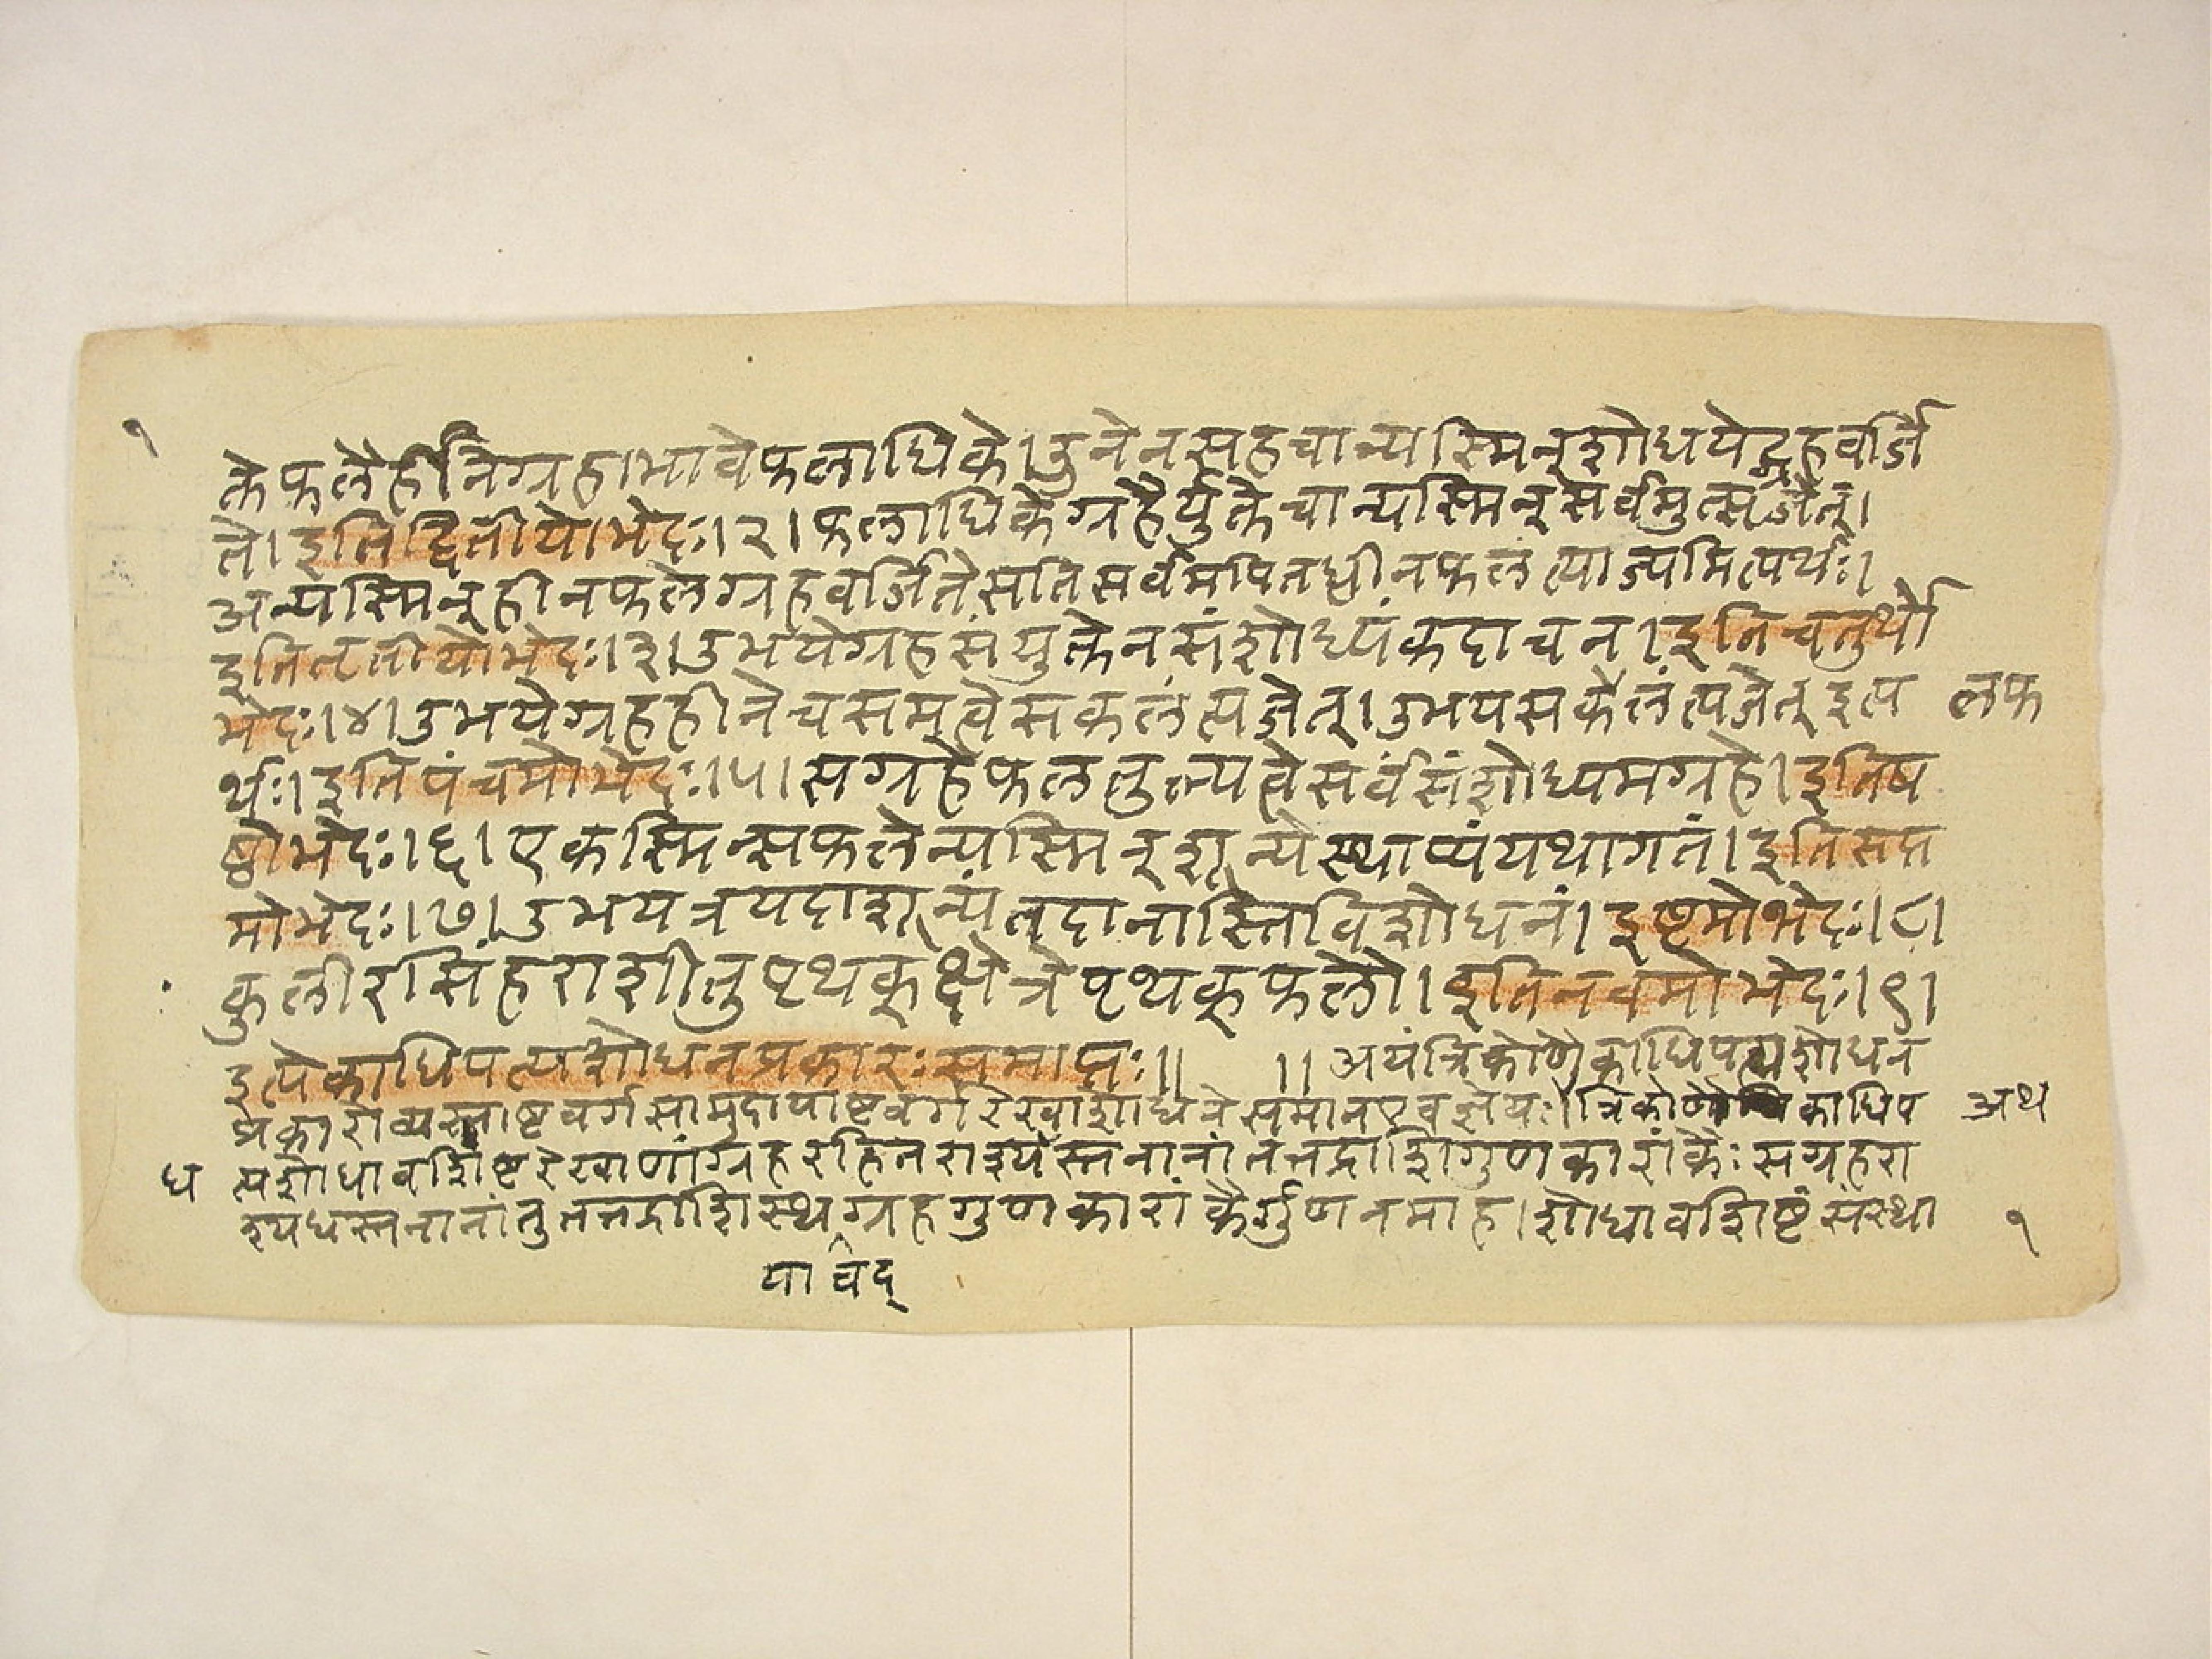 १
क्ते फलैर्हीने ग्रहाभावे फलाधिके। उनेन सह चान्यस्मिन् शोधयेद्ग्रहवर्जि
ते। इति द्वितीयो भेदः।२। फलाधिके ग्रहैर्युक्ते चान्यस्मिन् सर्वमुत्सृजेत्।
अन्यस्मिन् हीनफले ग्रहवर्जिते सति सर्वमपि तद्धीनफलं त्याज्यमित्यर्थः।
इति तृतीयो भेदः।३। उभये ग्रहसंयुक्ते न संशोध्यं कदाचन। इति चतुर्थो
भेदः।४। उभये ग्रहहीने च समत्वे सकलं त्यजेत्। उभयसकलं त्यजेत् इत्य लफ
र्थः। इति पंचमो भेदः।५। सग्रहे फलतुल्यत्वे सर्वं संशोध्यमग्रहे। इति ष
ष्ठो भेदः।६। एकस्मिन्सफलेन्यस्मिन् शून्ये स्थाप्यं यथागतं। इति सप्त
मो भेदः।७। उभयत्र यदा शून्यं तदा नास्ति विशोधनं। इष्टमो भेदः।८।
कुलीरसिंहराशी तु पृथक् क्षेत्रे पृथक् फलौ। इति नवमो भेदः।९।
इत्येकाधिपत्यशोधनप्रकारः समाप्तः॥ ॥ अयं त्रिकोणैकाधिपत्यशोधन
प्रकारो व्यस्ताष्टवर्गसामुदायाष्टवर्गरेखाशोधने समान एव ज्ञेयः। त्रिकोणैकाधिप अथ
ध त्यशोधावशिष्टरेखाणां ग्रहरहितराश्यधस्तनानां तत्तद्राशिगुणकारांकैः सग्रहरा
श्यधस्तनानां तु तत्तद्राशिस्थग्रहगुणकारांकैर्गुणनमाह। शोधावशिष्टं संस्था १
पा चेद्